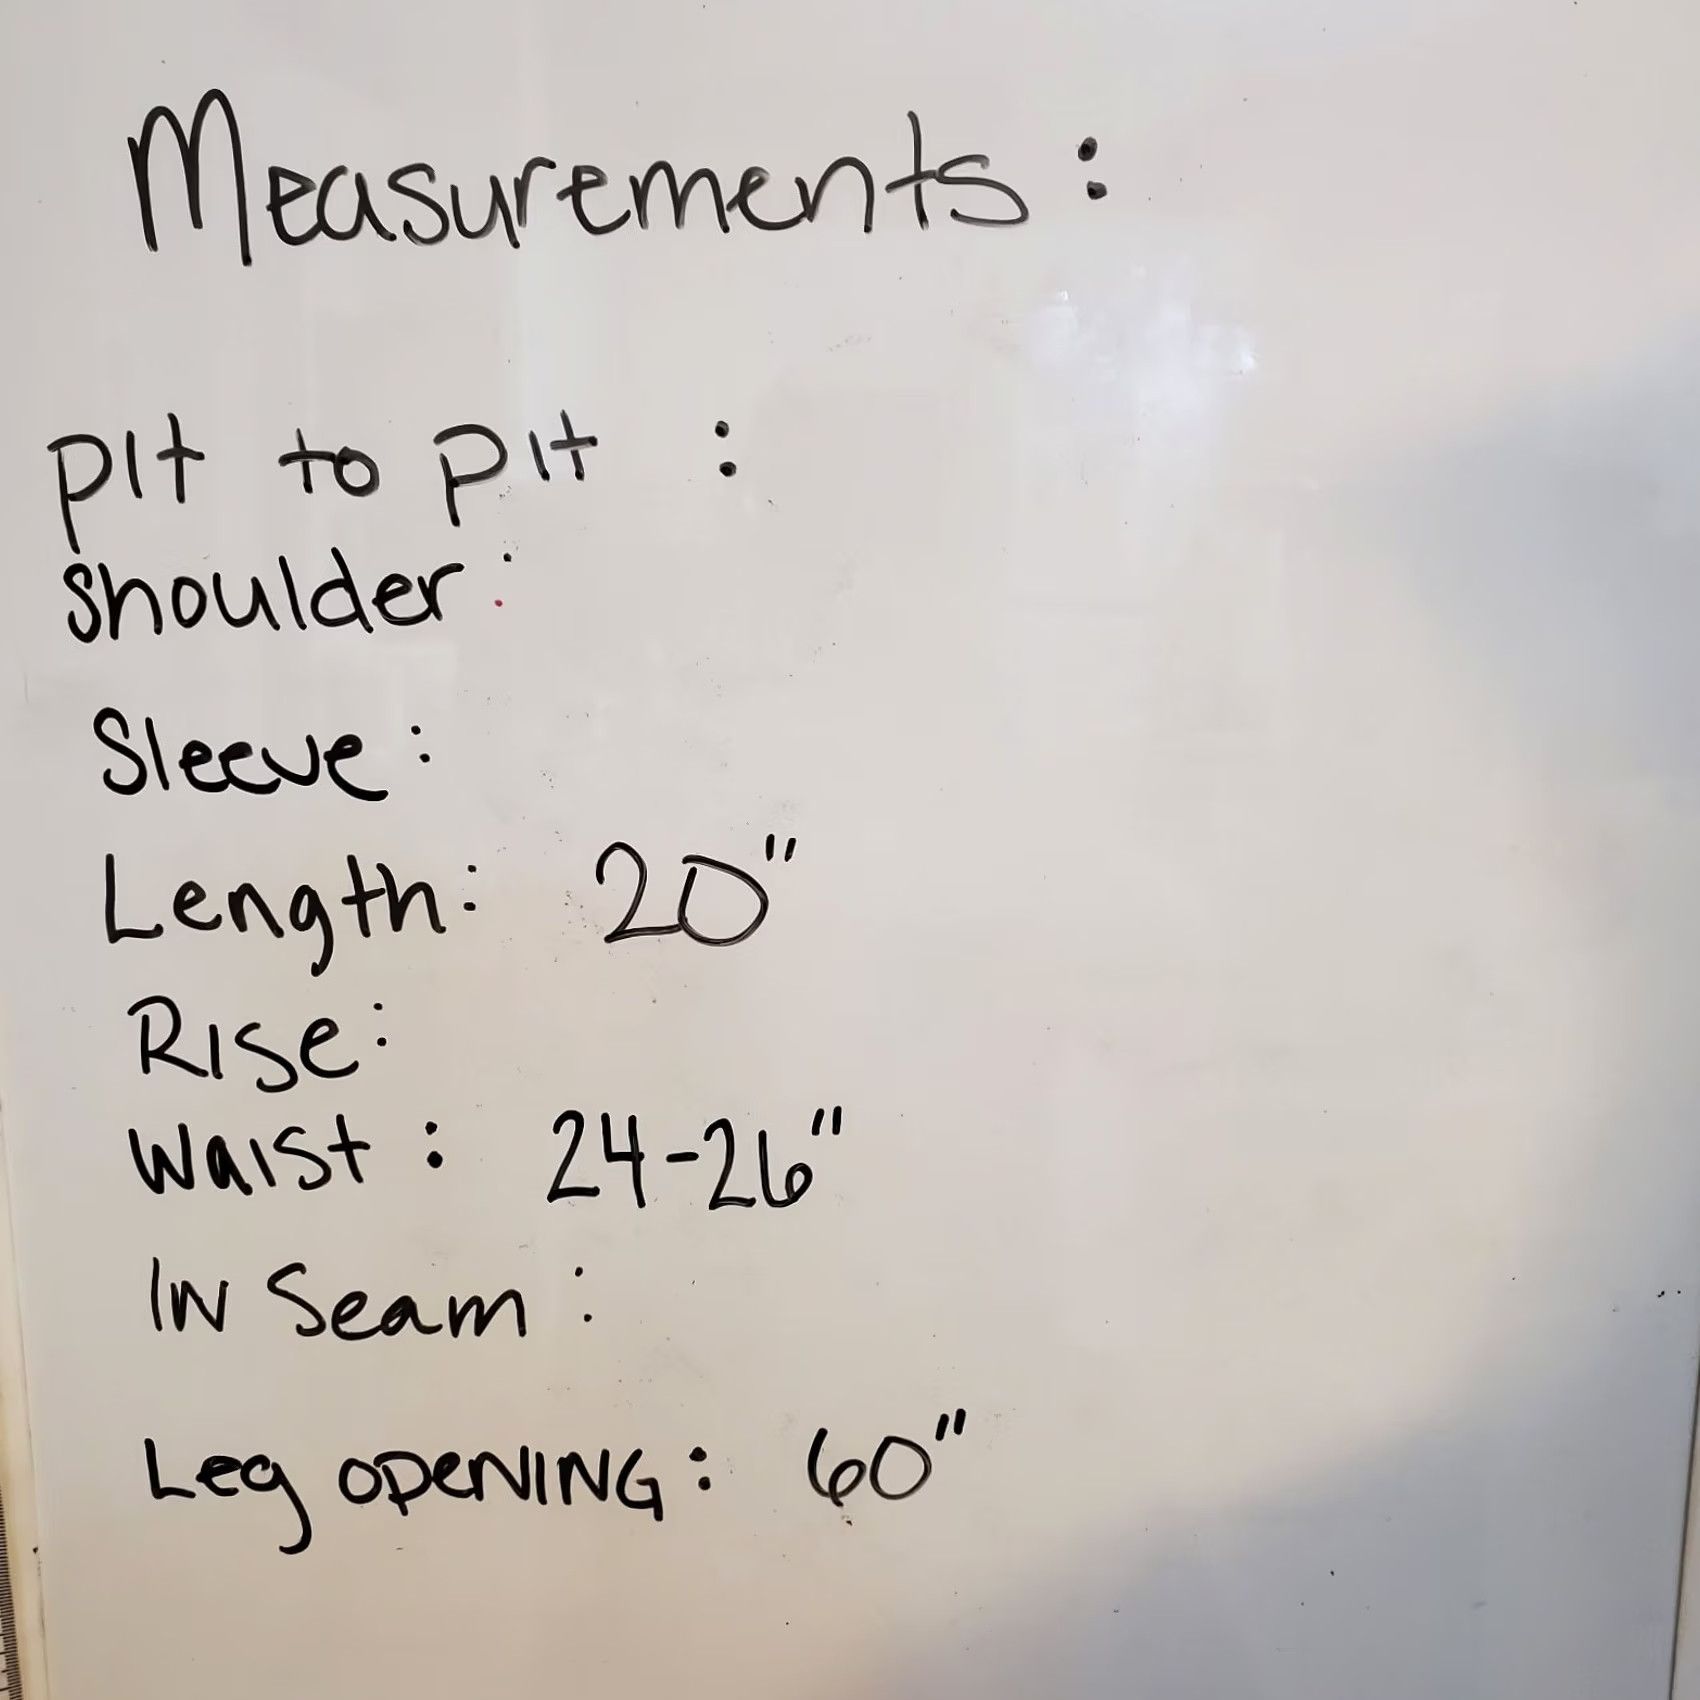 Measurements:
pit to pit :
shoulder:
Sleeve:
Length: 20"
Rise:
Waist: 24-26"
IN Seam:
Leg OPENING: 60"